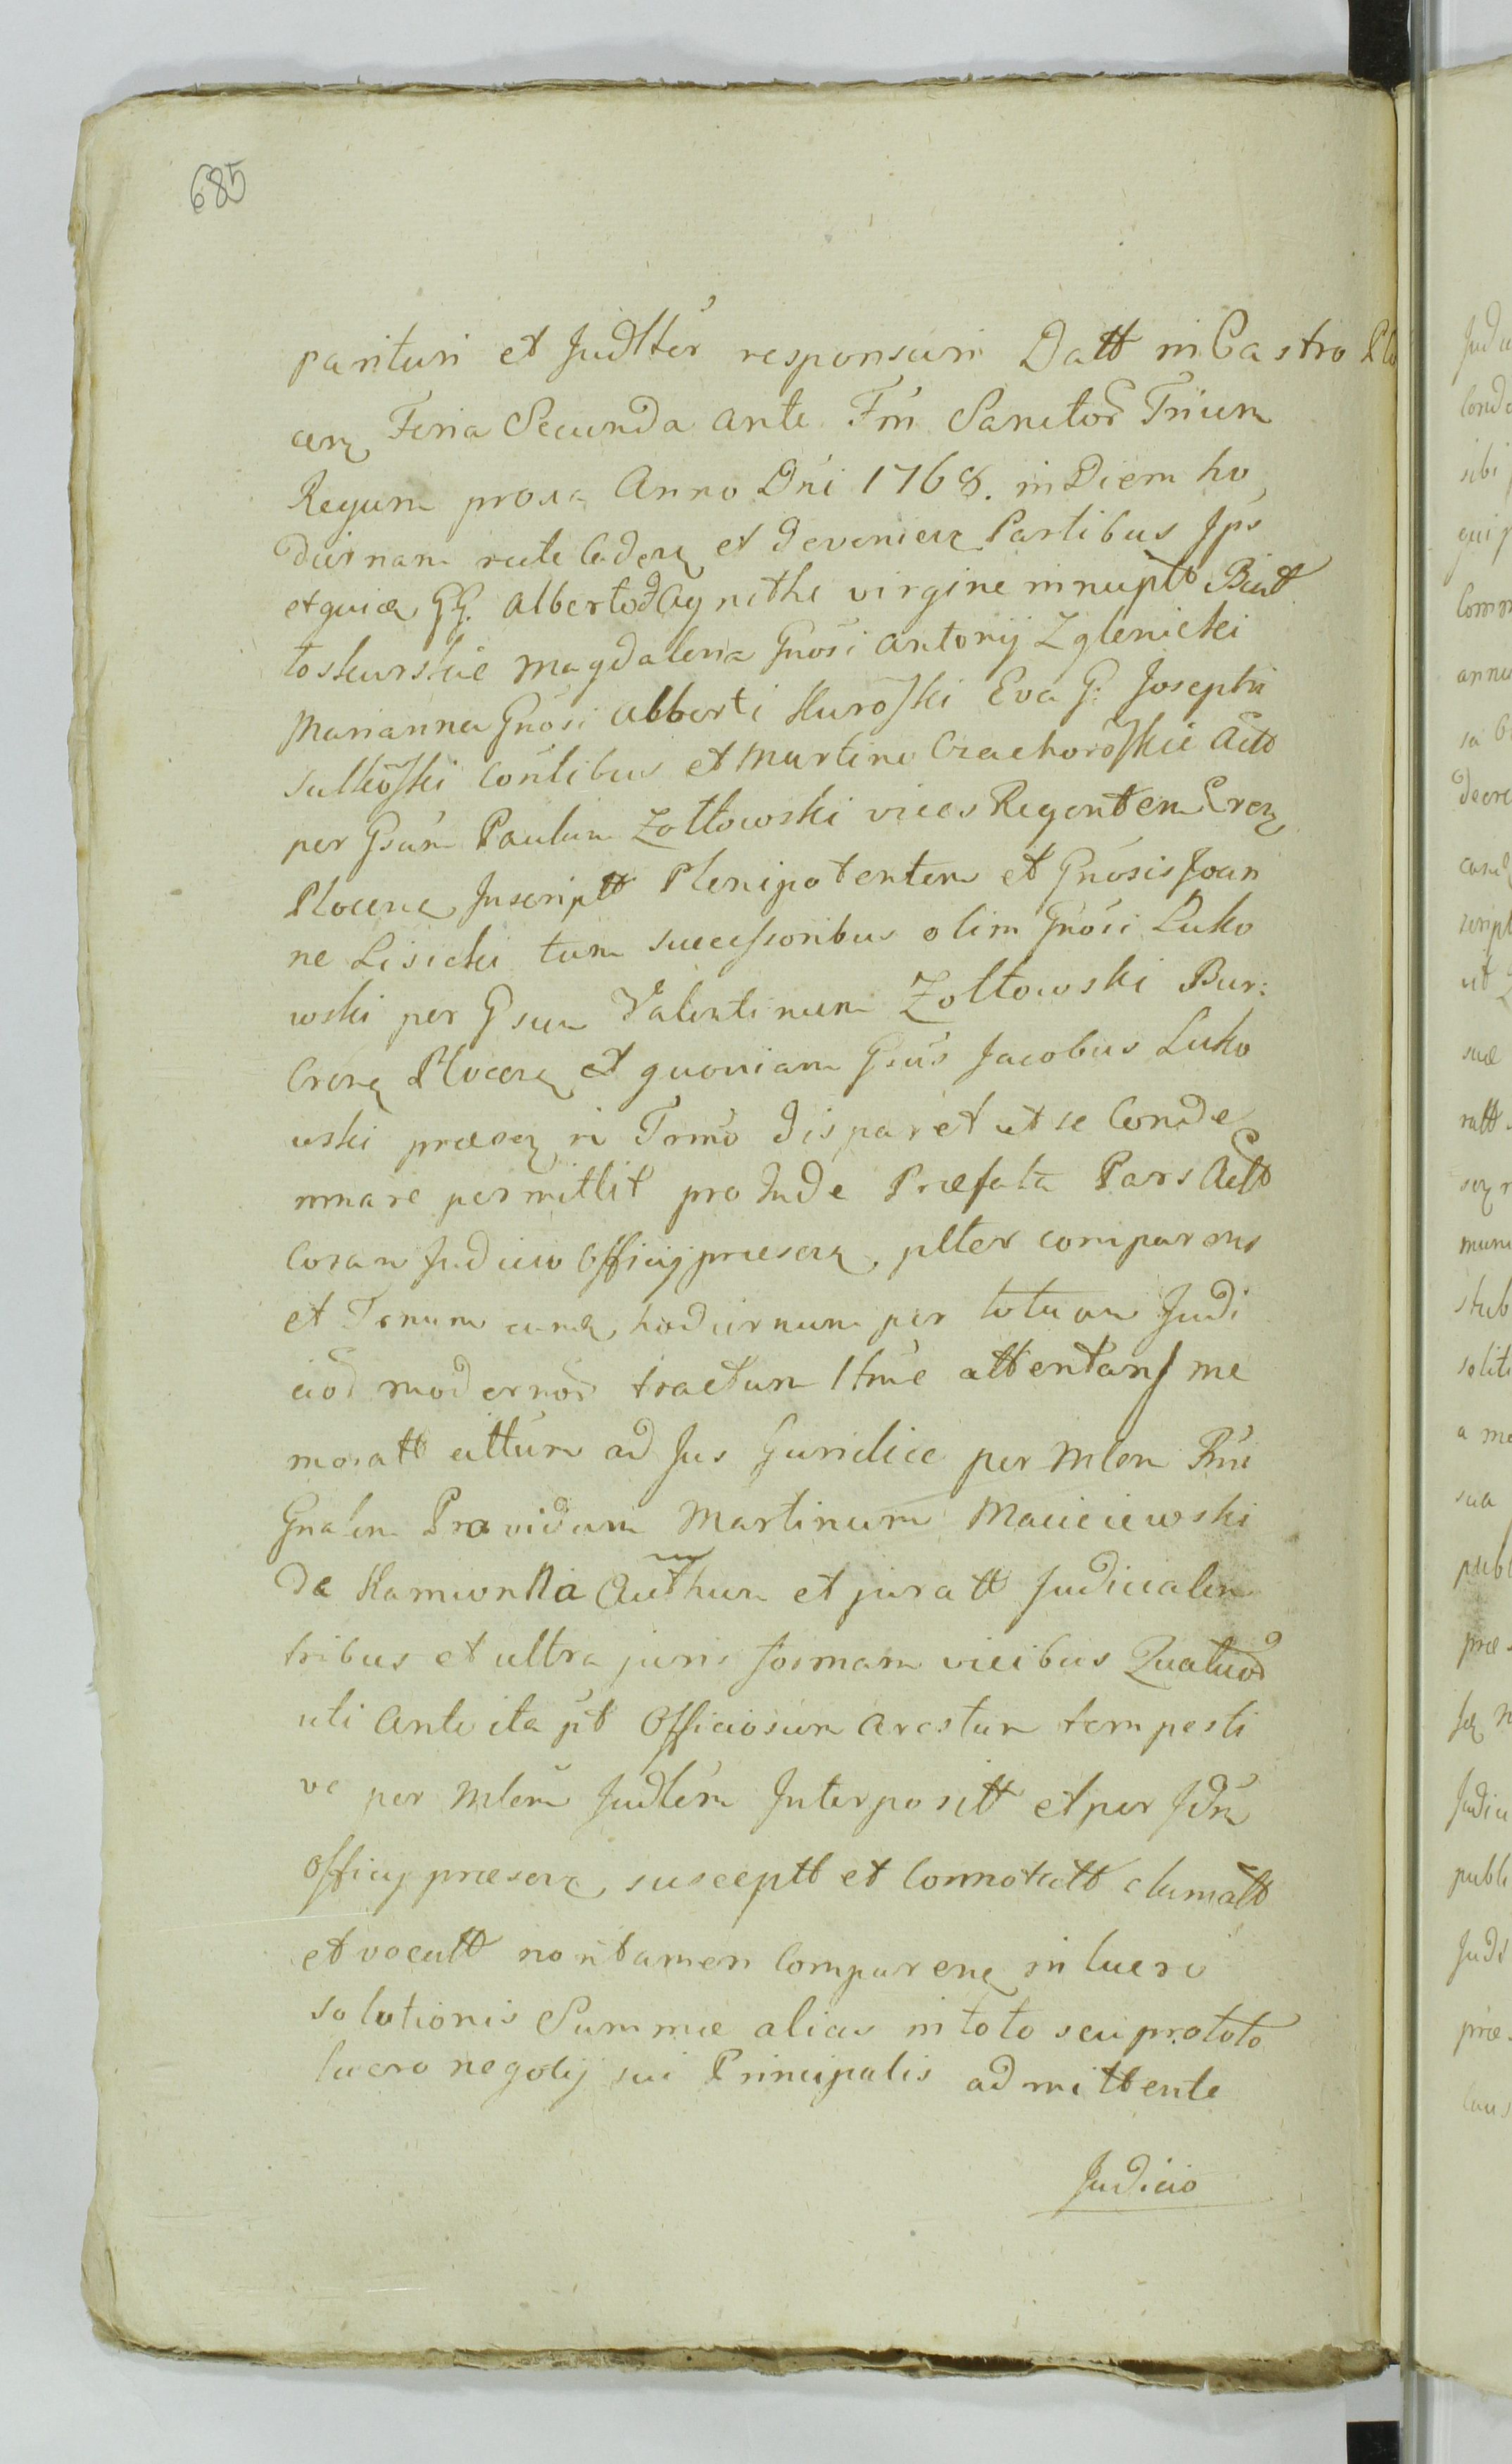 685
parituri et Judltér responsuri Datt in Castro Plo
cen Feria Secunda ante Fm Sanctor Trium
Regum proxa Anno Dni 1768. in Diem ho
diernam recte Caden et devenien Partibus Jps
et quia GG. Alberto Agnithe virgine innupta Biat
toskurskie Magdalena Gnosi Antonij Zglenicki
Marianna Gnosi Alberti Kuroski Eva G: Josephi
Sulkoski Contibus et Martino Czachoroskie Act
per Gsum Paulum Zołtowski vices Regentem Cren
Plocen Inscriptt Plenipotentem et Gnosis Joan
ne Lisicki tum successoribus olim Gnosi Luko
wski per Gsum Valentinum Zołtowski Bur:
Cren Plocen et quoniam Gsus Jacobus Luko
wski praesen in Trmo disparet et se Conde
mnare permittit pro Inde Praefata Pars Act
Coram Judicio Officij praesen plter comparens
et Termum hodiernum per totum Judi
cior modernor tractum ltme attentans me
moratt cittum ad Jus Guridice per Mlem Rni
Gnalem Providum Martinum Macieiewski
de Kamionka Authum et juratt Judicialem
tribus et ultra juris formam vicibus Quatuor
uti Ante ita pt Officiosum Arestum tempesti
ve per Mlem Judlem Interpositt et per Jdm
Officij praesen susceptt et Connotatt clamatt
et vocatt non tamen Comparen in lucro
solutionis Summae alias in toto seu pro toto
lucro negotij sui Principalis admittente
Judicio